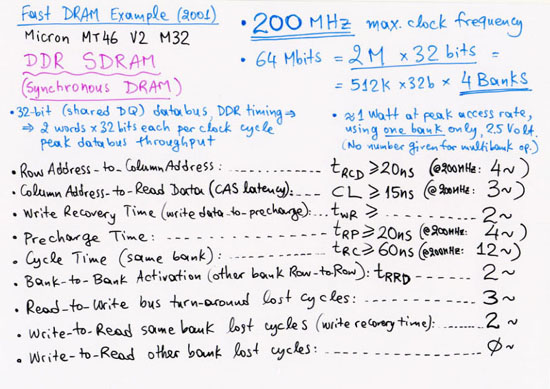 Fast DRAM Example (2001)
Micron MT46 V2 M32
DDR SDRAM
(Synchronous DRAM)
• 200 MHz max. clock frequency
• 64 Mbits = 2M × 32 bits =
= 512K × 32b × 4 Banks
• 32-bit (shared DQ) databus, DDR timing ⇒
⇒ 2 words × 32 bits each per clock cycle
peak databus throughput
• ≈ 1 Watt at peak access rate,
using one bank only, 2.5 Volt.
(No number given for multibank op.)
• Row Address-to-Column Address: tRCD ≥ 20ns (@200MHz: 4~)
• Column Address-to-Read Data (CAS latency): CL ≥ 15ns (@200MHz: 3~)
• Write Recovery Time (write data-to-precharge): tWR ≥ 2~
• Precharge Time: tRP ≥ 20ns (@200MHz: 4~)
• Cycle Time (same bank): tRC ≥ 60ns (@200MHz: 12~)
• Bank-to-Bank Activation (other bank Row-to-Row): tRRD 2~
• Read-to-Write bus turn-around lost cycles: 3~
• Write-to-Read same bank lost cycles (write recovery time): 2~
• Write-to-Read other bank lost cycles: Ø~